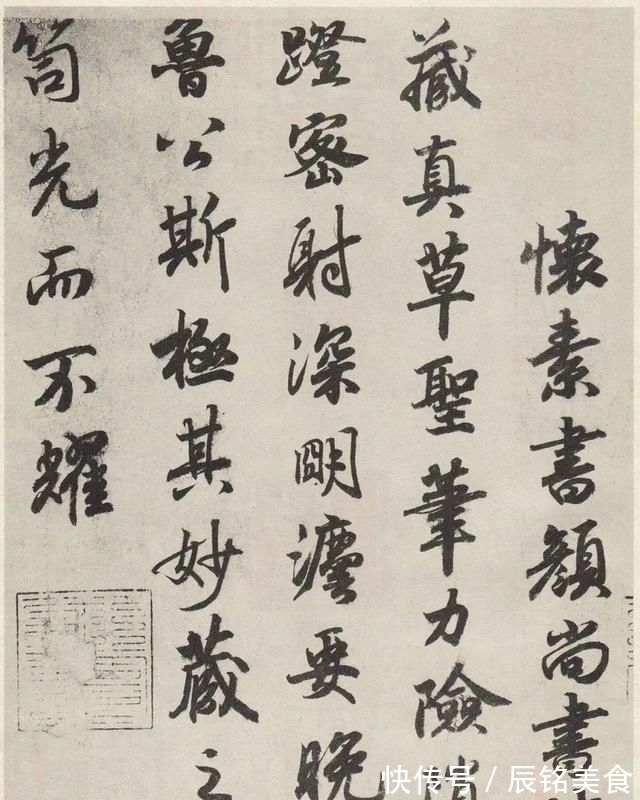 懷素書顔尚書
藏真草聖筆力險
蹬密射深朙要晚
魯公斯極其妙藏之
笥光而不耀
快传号/辰铭美食